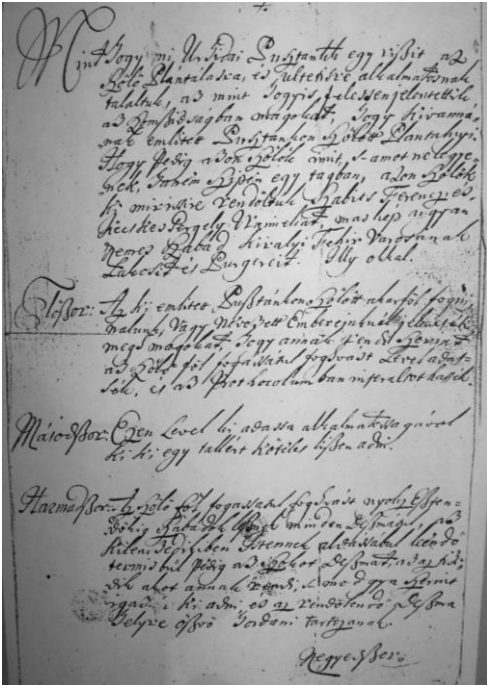 Mint hogy mi Urhidai Pusztank egy részit az
Szőlő Plantalasra, és ültetésre alkalmatosnak
talaltuk, az mint hogy is, felessen jelentettek
az Szomszédságban magokat, hogy kivanná-
nak emlitet Pusztánkon Szőlőtt Plantalnyi
Hogy Pedig a sok Szőlők imit, s-amot ne legye-
nek, hanem szépén egy tagban, azon Szőlők
ki mérésire rendöltük Babits Ferencz, es
Kecskes Gergely Uraimeket, mas kep ugyan
Nemes Szabad Kiralyi Fehér Varosanak
Lakosit és Purgereit. Illy okkal.
Elöszor: Az ki emlitet Pusztánkon Szőlött akar föl fogni
nalunk, Vagy Nevezett Embereinknél jelencsék
meg magokat, hogy annak rendi szerint
az Szőlő föl fogassarul fogdvast Level adas-
sék, és az Prothocolumban inseraltothassék.
Másodszor: Ezen Level ki adassa alkalmatossagával
ki ki egy tallért köteles lészen adni.
Harmadszor: A Szőlő föl fogassatul fogdvást nyolcz Eszten-
dökig Szabadok lesznek minden Deszmatul, az
Kilenczedikben Istennek aldassabul leendö
termésbül Pédig az Szokot Deszmat,
annak rendi, s modgya szerint
ki adni, es az rendölendö Deszma
helyre öszvö hordani tartozanak.
Negyedszer